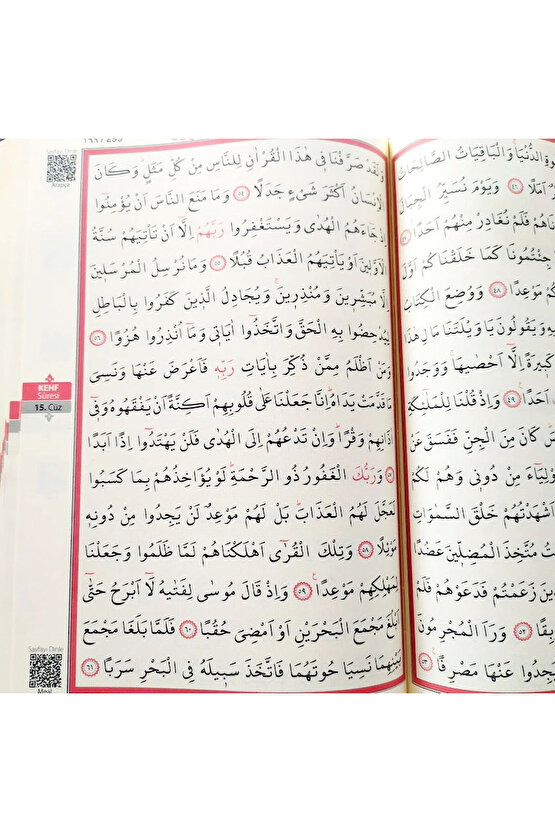 وةُ الدُّنْيَا وَالْبَاقِيَاتُ الصَّالِحَاتُ
اَمَلًا ﴿٤٦﴾ وَيَوْمَ نُسَيِّرُ الْجِبَالَ
نَاهُمْ فَلَمْ نُغَادِرْ مِنْهُمْ اَحَدًا ﴿٤٧﴾
جِئْتُمُونَا كَمَا خَلَقْنَاكُمْ اَوَّلَ
كُمْ مَوْعِدًا ﴿٤٨﴾ وَوُضِعَ الْكِتَابُ
يهِ وَيَقُولُونَ يَا وَيْلَتَنَا مَالِ هٰذَا
كَبِيرَةً اِلَّٓا اَحْصٰيهَا وَوَجَدُوا
اَحَدًا ﴿٤٩﴾ وَاِذْ قُلْنَا لِلْمَلٰٓئِكَةِ
سَ كَانَ مِنَ الْجِنِّ فَفَسَقَ عَنْ
وْلِيَٓاءَ مِنْ دُونِي وَهُمْ لَكُمْ
اَشْهَدْتُهُمْ خَلْقَ السَّمٰوَاتِ
تُ مُتَّخِذَ الْمُضِلِّينَ عَضُدًا
ينَ زَعَمْتُمْ فَدَعَوْهُمْ فَلَمْ
بِقًا ﴿٥٢﴾ وَرَاَ الْمُجْرِمُونَ
يَجِدُوا عَنْهَا مَصْرِفًا ﴿٥٣﴾
وَلَقَدْ صَرَّفْنَا فِي هٰذَا الْقُرْاٰنِ لِلنَّاسِ مِنْ كُلِّ مَثَلٍ وَكَانَ
الْاِنْسَانُ اَكْثَرَ شَيْءٍ جَدَلًا ﴿٥٤﴾ وَمَا مَنَعَ النَّاسَ اَنْ يُؤْمِنُٓوا
اِذْ جَٓاءَهُمُ الْهُدٰى وَيَسْتَغْفِرُوا رَبَّهُمْ اِلَّٓا اَنْ تَأْتِيَهُمْ سُنَّةُ
الْاَوَّلِينَ اَوْ يَأْتِيَهُمُ الْعَذَابُ قُبُلًا ﴿٥٥﴾ وَمَا نُرْسِلُ الْمُرْسَلِينَ
اِلَّا مُبَشِّرِينَ وَمُنْذِرِينَ وَيُجَادِلُ الَّذِينَ كَفَرُوا بِالْبَاطِلِ
لِيُدْحِضُوا بِهِ الْحَقَّ وَاتَّخَذُٓوا اٰيَاتِي وَمَٓا اُنْذِرُوا هُزُوًا ﴿٥٦﴾
وَمَنْ اَظْلَمُ مِمَّنْ ذُكِّرَ بِاٰيَاتِ رَبِّهِ فَاَعْرَضَ عَنْهَا وَنَسِيَ
مَا قَدَّمَتْ يَدَاهُ اِنَّا جَعَلْنَا عَلٰى قُلُوبِهِمْ اَكِنَّةً اَنْ يَفْقَهُوهُ وَفِٓي
اٰذَانِهِمْ وَقْرًا وَاِنْ تَدْعُهُمْ اِلَى الْهُدٰى فَلَنْ يَهْتَدُٓوا اِذًا اَبَدًا
﴿٥٧﴾ وَرَبُّكَ الْغَفُورُ ذُو الرَّحْمَةِ لَوْ يُؤَاخِذُهُمْ بِمَا كَسَبُوا
لَعَجَّلَ لَهُمُ الْعَذَابَ بَلْ لَهُمْ مَوْعِدٌ لَنْ يَجِدُوا مِنْ دُونِهِ
مَوْئِلًا ﴿٥٨﴾ وَتِلْكَ الْقُرٰٓى اَهْلَكْنَاهُمْ لَمَّا ظَلَمُوا وَجَعَلْنَا
لِمَهْلِكِهِمْ مَوْعِدًا ﴿٥٩﴾ وَاِذْ قَالَ مُوسٰى لِفَتٰيهُ لَٓا اَبْرَحُ حَتّٰٓى
اَبْلُغَ مَجْمَعَ الْبَحْرَيْنِ اَوْ اَمْضِيَ حُقُبًا ﴿٦٠﴾ فَلَمَّا بَلَغَا مَجْمَعَ
بَيْنِهِمَا نَسِيَا حُوتَهُمَا فَاتَّخَذَ سَبِيلَهُ فِي الْبَحْرِ سَرَبًا ﴿٦١﴾
Sayfayı Dinle
Arapça
KEHF
Sûresi
15. Cüz
Sayfayı Dinle
Meal